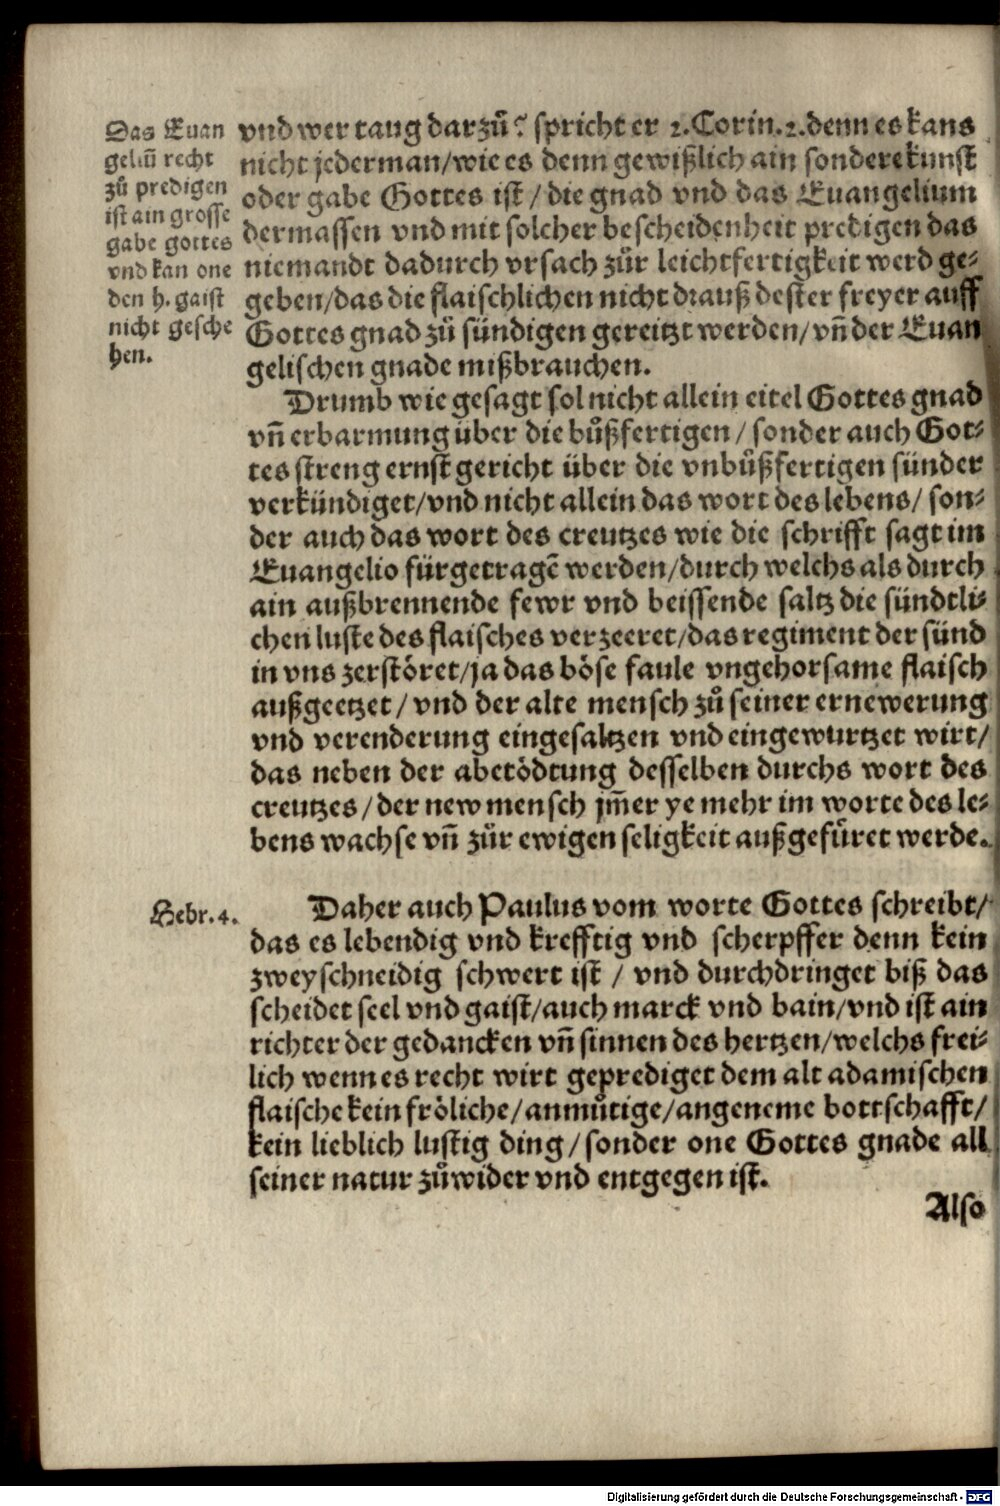 Das Euan
geliũ recht
zů predigen
ist ain grosse
gabe gottes
vnd kan one
den h. gaist
nicht gesche
hen.
vnd wer taug darzů? spricht er 2. Corin. 2. denn es kans
nicht jederman/wie es denn gewißlich ain sondere kunst
oder gabe Gottes ist / die gnad vnd das Euangelium
dermassen vnd mit solcher bescheidenheit predigen das
niemandt dadurch vrsach zůr leichtfertigkeit werd ge⸗
geben/das die flaischlichen nicht drauß dester freyer auff
Gottes gnad zů sündigen gereitzt werden/ vñ der Euan
gelischen gnade mißbrauchen.
Drumb wie gesagt sol nicht allein eitel Gottes gnad
vñ erbarmung über die bůßfertigen / sonder auch Got⸗
tes streng ernst gericht über die vnbůßfertigen sünder
verkündiget/vnd nicht allein das wort des lebens/ son⸗
der auch das wort des creutzes wie die schrifft sagt im
Euangelio fürgetragẽ werden/durch welchs als durch
ain außbrennende fewr vnd beissende saltz die sündtli⸗
chen luste des flaisches verzeeret/das regiment der sünd
in vns zerstöret/ja das böse faule vngehorsame flaisch
außgeetzet / vnd der alte mensch zů seiner ernewerung
vnd verenderung eingesaltzen vnd eingewurtzet wirt/
das neben der abetödtung desselben durchs wort des
creutzes / der new mensch jm̃er ye mehr im worte des le⸗
bens wachse vñ zůr ewigen seligkeit außgefüret werde.
Hebr. 4.
Daher auch Paulus vom worte Gottes schreibt/
das es lebendig vnd krefftig vnd scherpffer denn kein
zweyschneidig schwert ist / vnd durchdringet biß das
scheidet seel vnd gaist/auch marck vnd bain/vnd ist ain
richter der gedancken vñ sinnen des hertzen/welchs frei⸗
lich wenn es recht wirt geprediget dem alt adamischen
flaische kein fröliche/anmůtige/angeneme bottschafft/
kein lieblich lustig ding / sonder one Gottes gnade all
seiner natur zůwider vnd entgegen ist.
Also
Digitalisierung gefördert durch die Deutsche Forschungsgemeinschaft - DFG